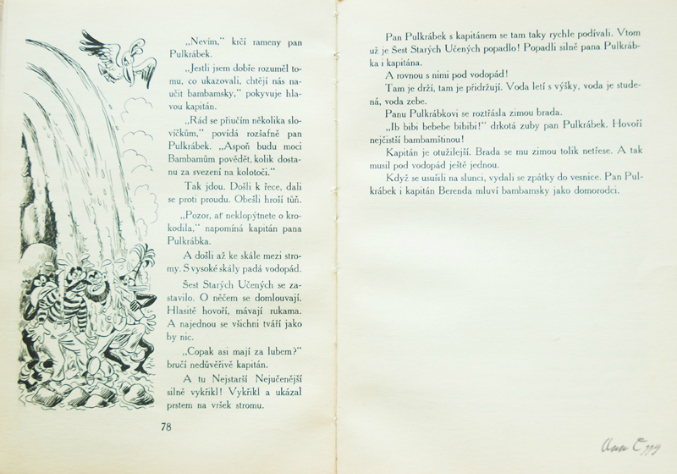 „Nevím,“ krčí rameny pan
Pulkrábek.
„Jestli jsem dobře rozuměl to-
mu, co ukazovali, chtějí nás na-
učit bambamsky,“ pokyvuje hla-
vou kapitán.
„Rád se přiučím několika slo-
víčkům,“ povídá rozšafně pan
Pulkrábek. „Aspoň budu moci
Bambamům povědět, kolik dosta-
nu za svezení na kolotoči.“
Tak jdou. Došli k řece, dali
se proti proudu. Obešli hroší tůň.
„Pozor, ať neklopýtnete o kro-
kodila,“ napomíná kapitán pana
Pulkrábka.
A došli až ke skále mezi stro-
my. S vysoké skály padá vodopád.
Šest Starých Učených se za-
stavilo. O něčem se domlouvají.
Hlasitě hovoří, mávají rukama.
A najednou se všichni tváří jako
by nic.
„Copak asi mají za lubem?“
bručí nedůvěřivě kapitán.
A tu Nejstarší Nejučenější
silně vykřikl! Vykřikl a ukázal
prstem na vršek stromu.
78
Pan Pulkrábek s kapitánem se tam taky rychle podívali. Vtom
už je Šest Starých Učených popadlo! Popadli silně pana Pulkráb-
ka i kapitána.
A rovnou s nimi pod vodopád!
Tam je drží, tam je přidržují. Voda letí s výšky, voda je stude-
ná, voda zebe.
Panu Pulkrábkovi se roztřásla zimou brada.
„Ib bibi bebebe bibibi!“ drkotá zuby pan Pulkrábek. Hovoří
nejčistší bambamštinou!
Kapitán je otužilejší. Brada se mu zimou tolik netřese. A tak
musil pod vodopád ještě jednou.
Když se usušili na slunci, vydali se zpátky do vesnice. Pan Pul-
krábek i kapitán Berenda mluví bambamsky jako domorodci.